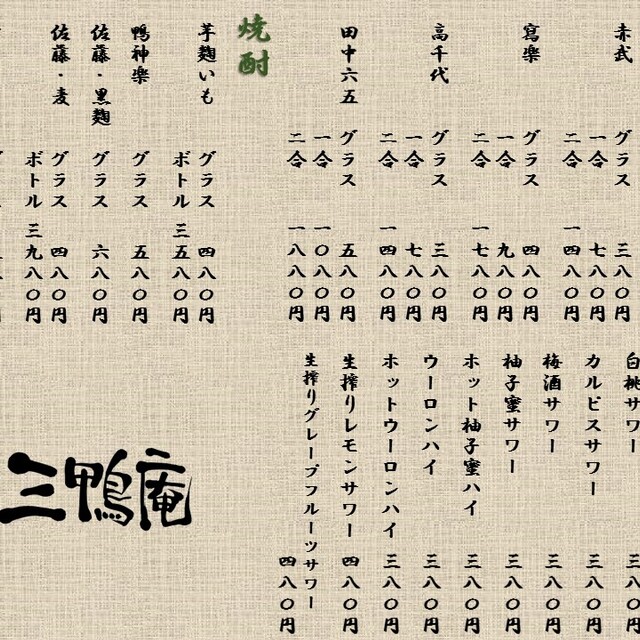 赤武
グラス 三八〇円
一合 七八〇円
二合 一四八〇円
寫楽
グラス 四八〇円
一合 九八〇円
二合 一七八〇円
高千代
グラス 三八〇円
一合 七八〇円
二合 一四八〇円
田中六五
グラス 五八〇円
一合 一〇八〇円
二合 一八八〇円
焼酎
芋麹いも
グラス 四八〇円
ボトル 三五八〇円
鴨神楽
グラス 五八〇円
佐藤・黒麹
グラス 六八〇円
佐藤・麦
グラス 四八〇円
ボトル 三九八〇円
白桃サワー 三八〇円
カルピスサワー 三八〇円
梅酒サワー 三八〇円
柚子蜜サワー 三八〇円
ホット柚子蜜ハイ 三八〇円
ウーロンハイ 三八〇円
ホットウーロンハイ 三八〇円
生搾りレモンサワー 四八〇円
生搾りグレープフルーツサワー 四八〇円
三鴨庵